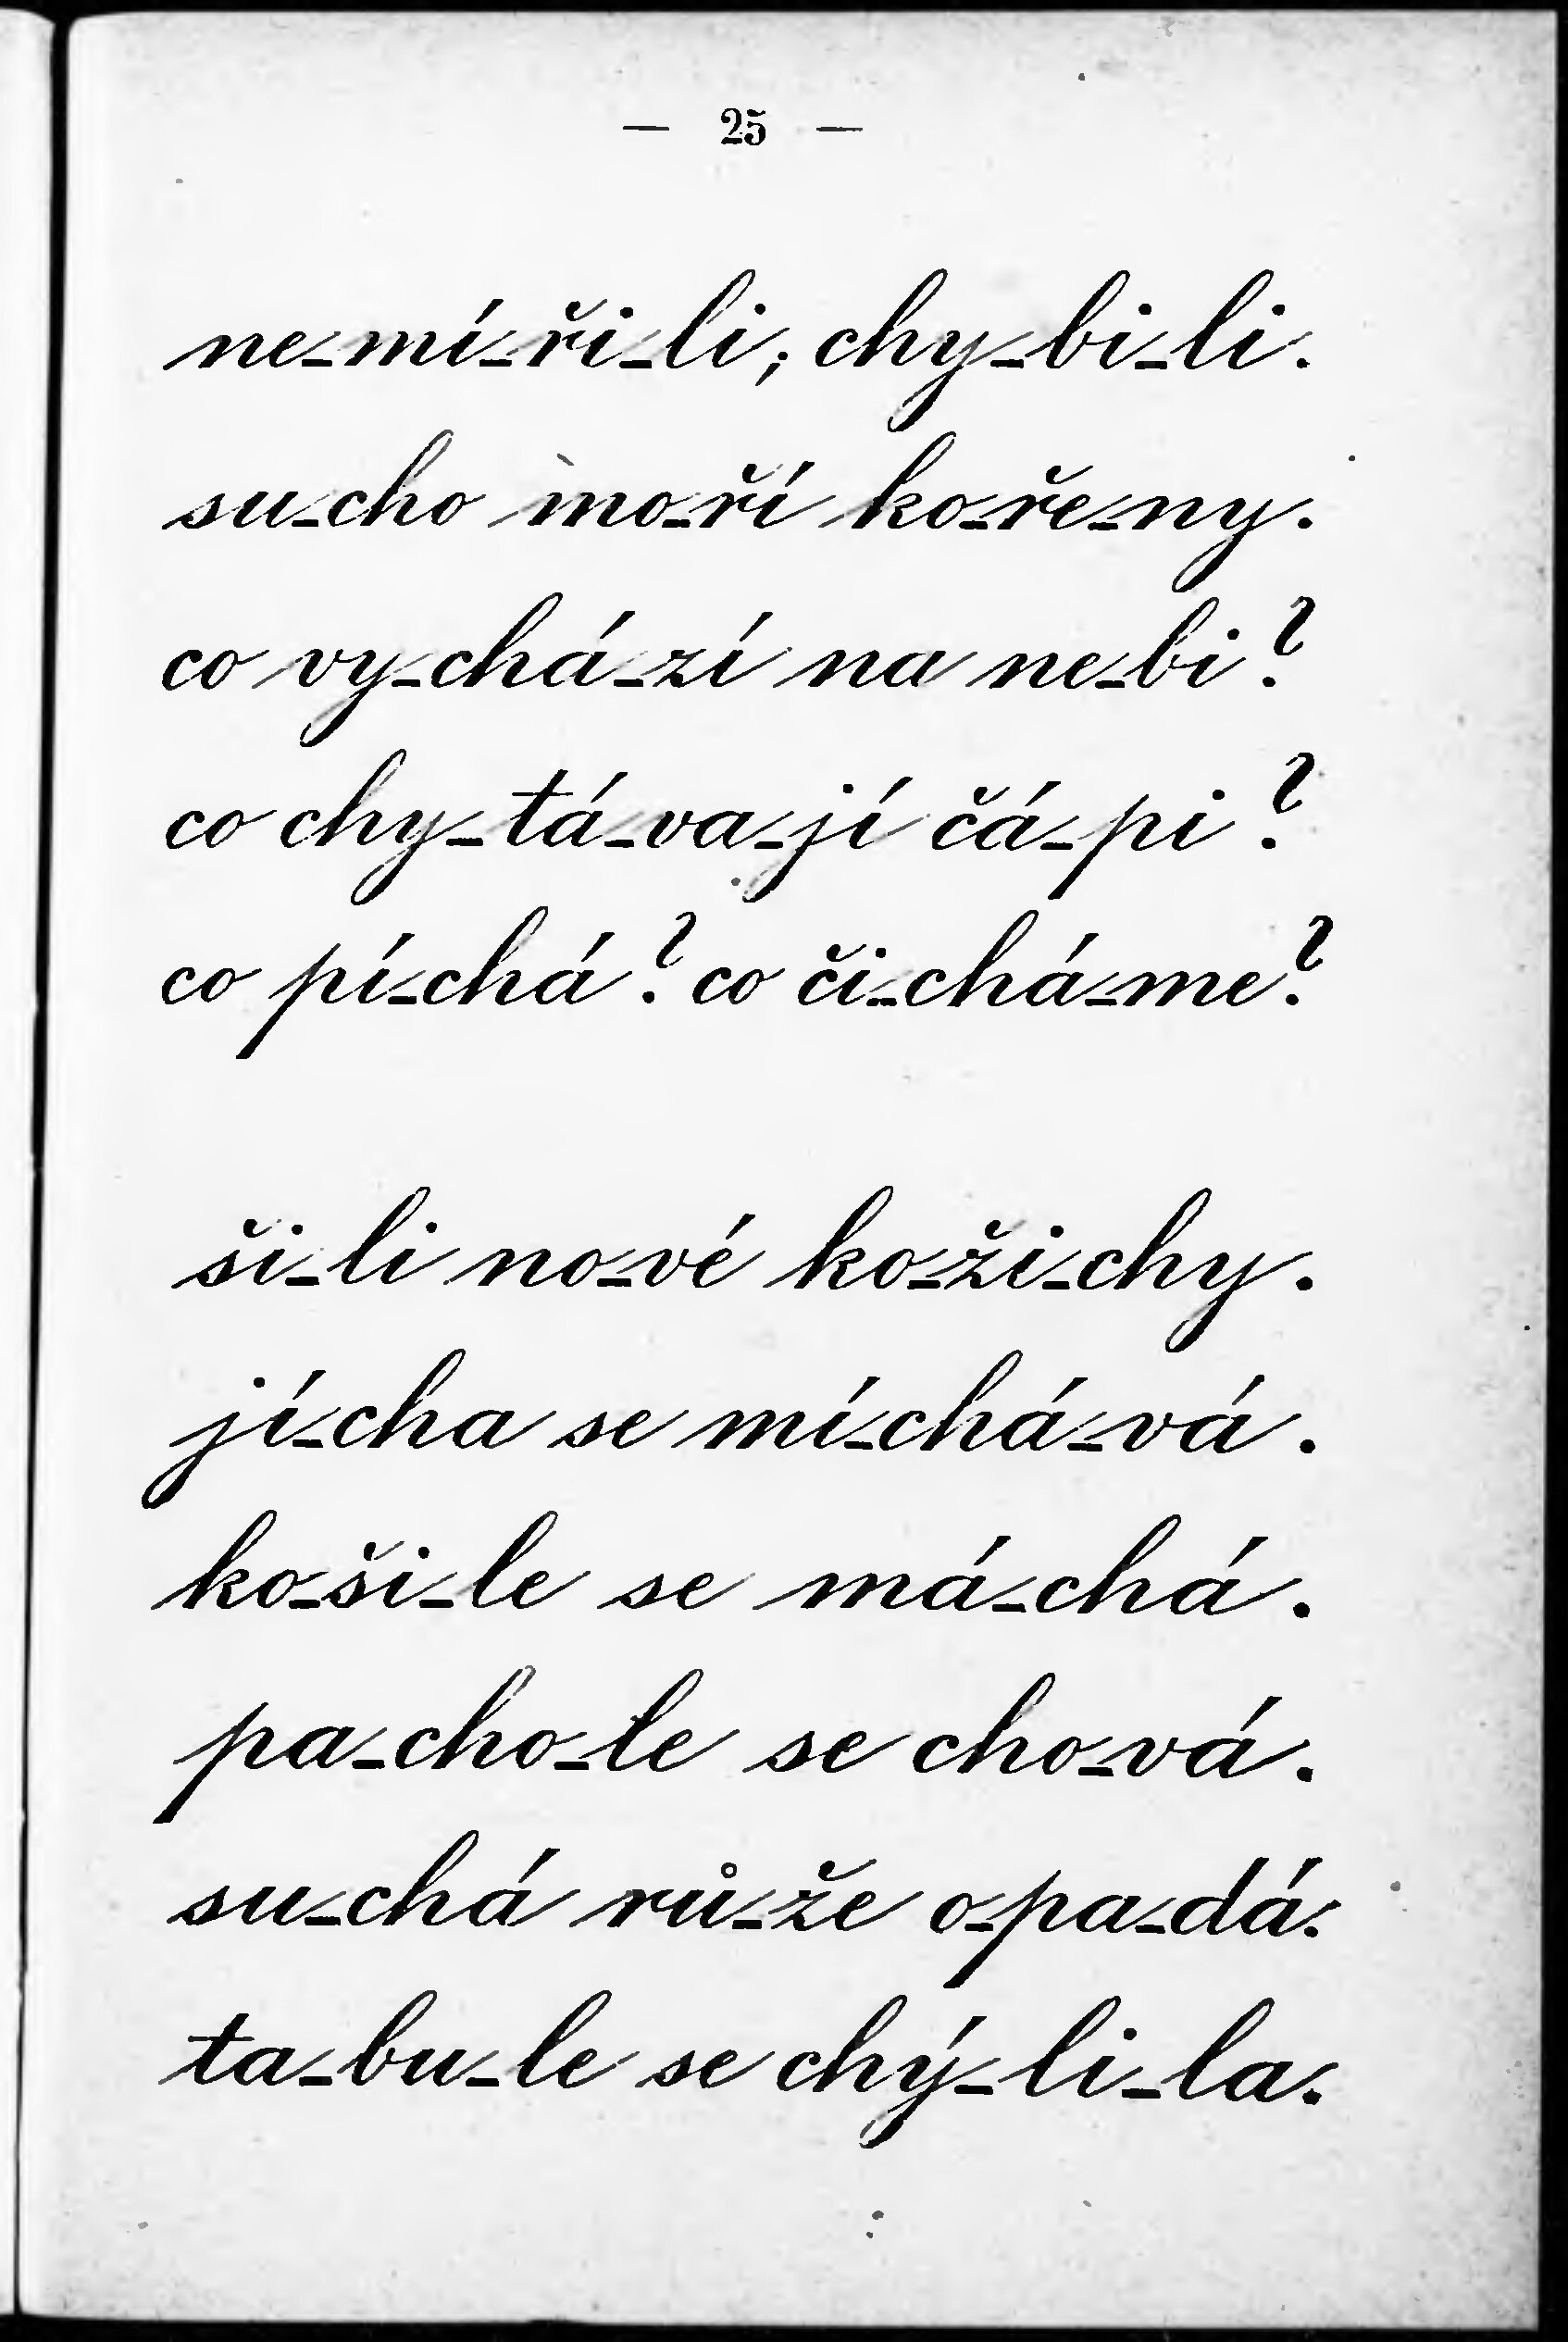 — 25 —
ne-mí-ři-li, chy-bi-li.
su-cho mo-ří ko-ře-ny.
co vy-chá-zí na ne-bi?
co chy-tá-va-jí čá-pi?
co pí-chá? co či-chá-me?
ši-li no-vé ko-ži-chy.
jí-cha se mí-chá-vá.
ko-ši-le se má-chá.
pa-cho-le se cho-vá.
su-chá rů-že o-pa-dá.
ta-bu-le se chý-li-la.